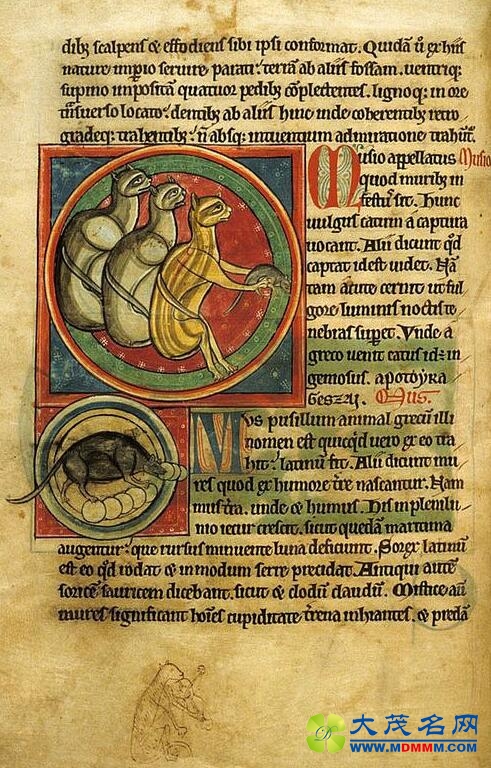 dib; scalpens & effodiens sibi ipsi conformat. Quidã ũ ex hiis
nature imperio seruire parati. terrã ab aliis fossam. uentriq;
supino impositã quatuor pedib; complectentes. lignoq; in ore
trãsuerso locato. dentib; ab aliis hinc inde coherentib; retro
gradeq; trahentib; ñ absq; intuentium admiratione trahũt.
Musio appellatus Musio
quod murib; in
festus sit. Hunc
uulgus catum a captura
uocant. Alii dicunt qd
captat idest uidet. Nã
tam acute cernit ut ful
gore luminis noctis te
nebras supet. Vnde a
greco uenit catus id in
geniosus.
Mus.
Mus pusillum animal grecũ illi
nomen est quicqd uero ex eo tra
hit latinũ fit. Alii dicunt mu
res quod ex humore tre nascantur. Nam
mus tra. unde & humus. His in plenilu
nio iecur crescit. sicut quedã maritima
augentur. que rursus minuente luna deficiunt. Sorex latinũ
est eo qd rodat & in modum serre precidat. Antiqui autẽ
soricẽ sauricem dicebant. sicut & clodũ claudũ. Mistice aũ
mures significant hoĩes cupiditate trena inhiantes. & predã
大茂名网
WWW.MDMMM.COM